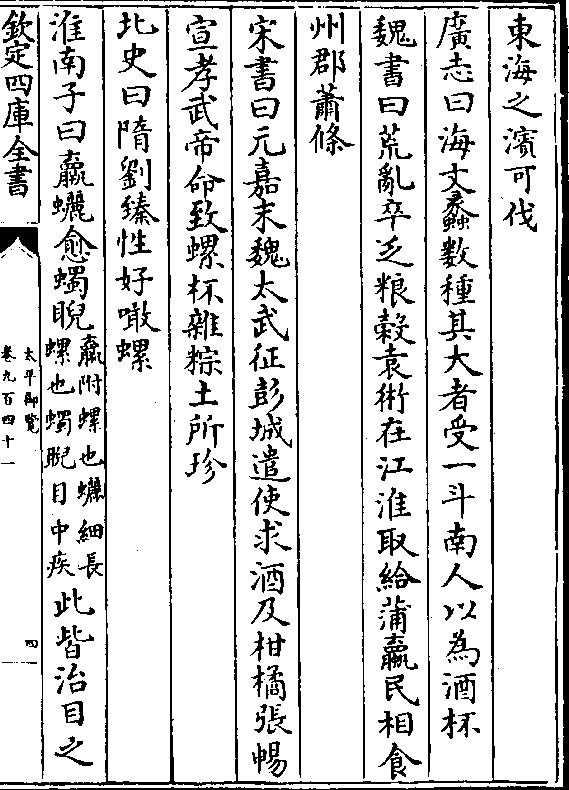 東海之濱可伐
廣志曰海文蠡數種其大者受一斗南人以為酒杯
魏書曰荒亂卒乏粮穀袁術在江淮取給蒲蠃民相食
州郡蕭條
宋書曰元嘉末魏太武征彭城遣使求酒及柑橘張暢
宣孝武帝命致螺杯雜粽土所珍
北史曰隋劉臻性好噉螺
淮南子曰蠃蠬愈蠋睨蠃附螺也蠬細長螺也蠋睨目中疾此皆治目之
欽定四庫全書
太平御覧
卷九百四十一
四